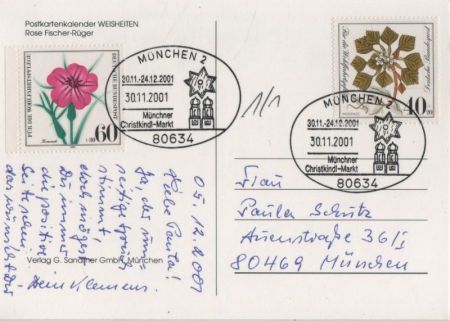 Postkartenkalender WEISHEITEN
Rose Fischer-Rüger
FÜR DIE WOHLFAHRTSPFLEGE
DEUTSCHE BUNDESPOST
60
MÜNCHEN 2
30.11.-24.12.2001
30.11.2001
Münchner
Christkindl-Markt
80634
1/1
Für die Wohlfahrtspflege
Deutsche Bundespost
40
MÜNCHEN 2
30.11.-24.12.2001
30.11.2001
Münchner
Christkindl-Markt
80634
05.12.2001
Liebe Paula!
Ja, der
stimmt,
doch mögest
Du immer
die positive
Seite sehen,
das wünscht Dir
Dein Klemens.
Verlag G. Sandner GmbH, München
Frau
Paula Schütz
Auenstraße 36/I
80469 München